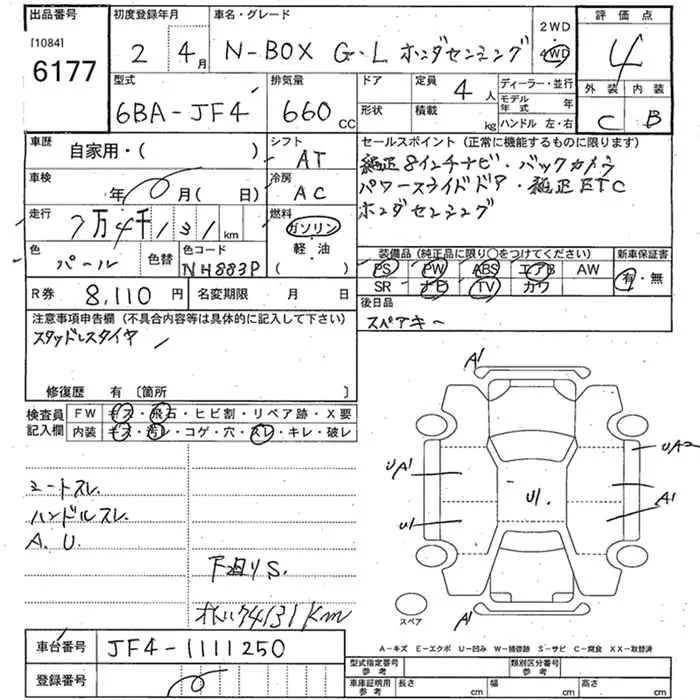 出品番号
[1084]
6177
初度登録年月
2 4月
車名・グレード
N-BOX G・L ホンダセンシング
2WD
4WD
評価点
4
外装 内装
C B
型式
6BA-JF4
排気量
660 cc
ドア
形状
定員 4人
積載 kg
ディーラー・並行
モデル年式 年
ハンドル 左・右
車歴
自家用・( )
シフト
AT
車検
年 月( 日)
冷房
AC
走行
7万4千131km
燃料
ガソリン
軽・油
( )
色
パール
色替
色コード
NH883P
セールスポイント(正常に機能するものに限ります)
純正8インチナビ・バックカメラ
パワースライドドア・純正ETC
ホンダセンシング
装備品(純正品に限り○をつけてください)
PS PW ABS エアB AW
SR ナビ TV カワ
新車保証書
有・無
R券 8,110円
名変期限 月 日
後日品
スペアキー
注意事項申告欄(不具合内容等は具体的に記入して下さい)
スタッドレスタイヤ
修復歴 有〔箇所 〕
検査員
記入欄
FW キズ・飛石・ヒビ割・リペア跡・X要
内装 キズ・汚レ・コゲ・穴・スレ・キレ・破レ
シートスレ
ハンドルスレ
A.U.
下廻りS.
74131km
A1
UA1
U1
U1.
UA2
A1
A1
スペア
A-キズ E-エクボ U-凹み W-補修跡 S-サビ C-腐食 XX-取替済
車台番号
JF4-1111250
登録番号
型式指定番号 参考
類別区分番号 参考
車庫証明用 参考
長さ cm
幅 cm
高さ cm